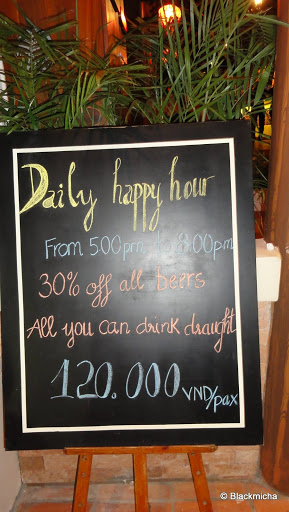 Daily happy hour
From 5:00pm 8:00pm
30% off all beers
All you can drink draught
120.000 VND/pax
© Blackmicha